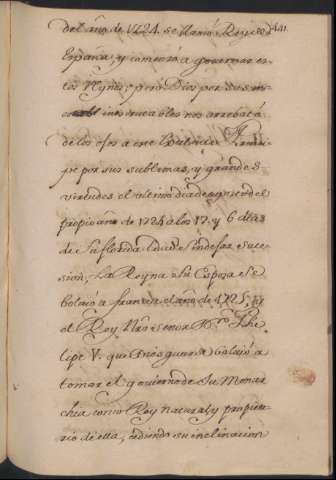 del año de 1724. se llamó Rey de 441.
España, y comenzó a governar es-
tos Rynos; pero Dios por sus ins-
crutables nos arrebató
de los ojos a este Princi-
pe por sus sublemas, y grandes
virtudes el ultimo dia de agosto del
propio año de 1724 a los 17. y 6 dias
de Su florida edad sin dejar suce-
sion, La Reyna su Esposa se
bolvio a francia el año de 1725, y
el Rey Nro señor Dn. Phe-
lipe V. que Dios guarde bolvió a
tomar el govierno de Su Monar
chia como Rey natural, y propieta-
rio de ella, cediendo su inclinacion